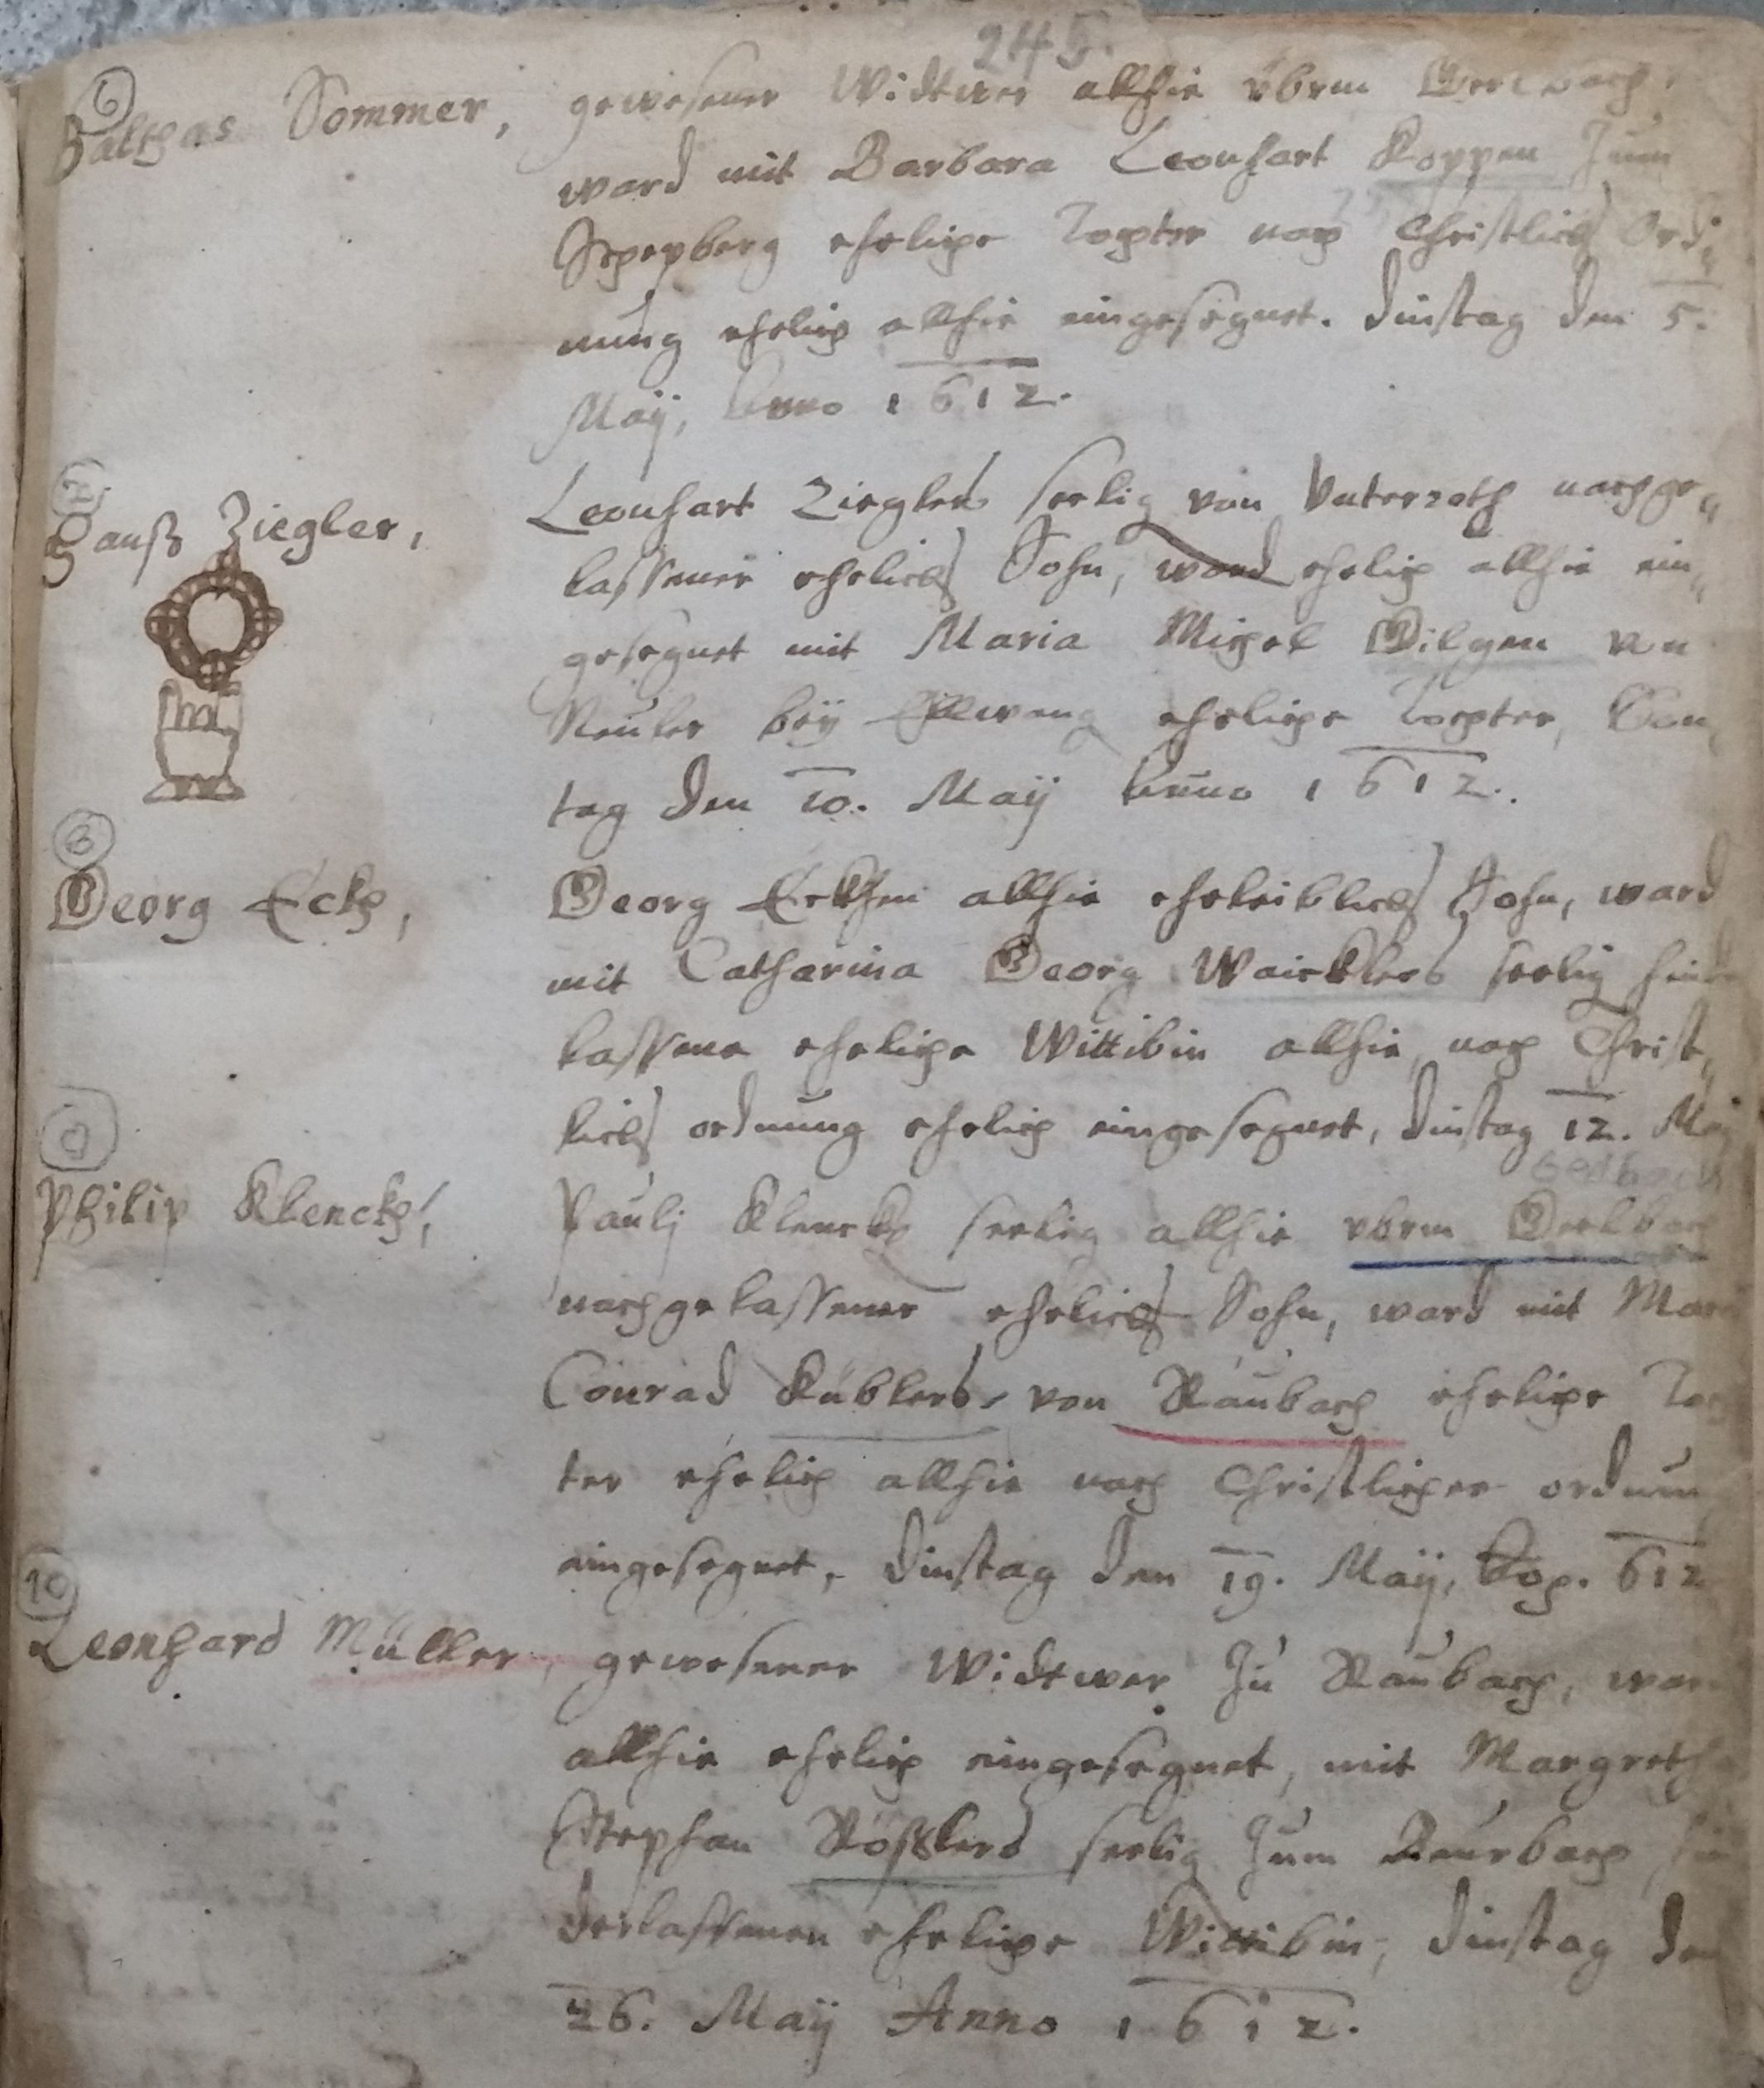 245
6
Balthas Sommer, gewesener Widtwer allhie vbrm
ward mit Barbara Leonhart Koppen zum
ehelige Tochter nach Christlicher Ord„
nung ehelich allhie eingesegnet. Dinstag den 5.
Maÿ, Anno 1612.
7
Hanß Ziegler, Leonhart Zieglers seelig von Vnterroth nachge„
lassener ehelicher Sohn, ward ehelich allhie ein„
gesegnet mit Maria Michel Gilgen von
Neuler beÿ Ellwang eheliche Tochter, Son„
tag den 10. Maÿ Anno 1612.
8
Georg Eckh, Georg Eckhen allhie ehleiblicher Sohn, ward
mit Catharina Georg Waicklers seelig
lassene eheliche Wittibin allhie, nach Christ„
licher ordnung ehelich eingesegnet, Dinstag 12. Maÿ
9
Philip Klenckh, Paulj Klenckh seelig allhie vbrm
nachgelassener ehelicher Sohn, ward mit
Conrad Küblers, von Raubach eheliche Toch
ter ehelich allhie nach Christlicher ordnung
eingesegnet, Dinstag den 19. Maÿ, 612
10
Leonhard Müller, gewesener Widtwer zu Raubach, ward
allhie ehelich eingesegnet, mit Margretha
Stephan Rößlers seelig zum hin
derlassenen eheliche Wittibin, Dinstag den
26. Maÿ Anno 1612.